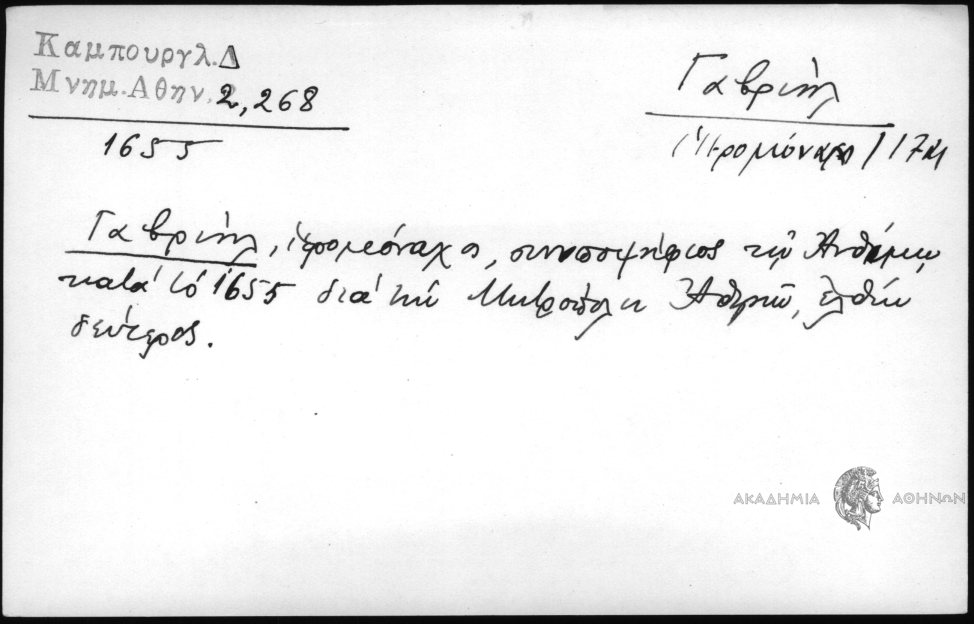 Καμπουργλ. Δ
Μνημ. Αθην. 2, 268
1655
Γαβριήλ
ἱερομόναχος / 17μ
Γαβριήλ, ἱερομόναχος, συνυποψήφιος τῷ Ἀνθίμῳ
κατά τό 1655 διά τήν Μητρόπολιν Ἀθηνῶν, ἐλθών
δεύτερος.
ΑΚΑΔΗΜΙΑ ΑΘΗΝΩΝ